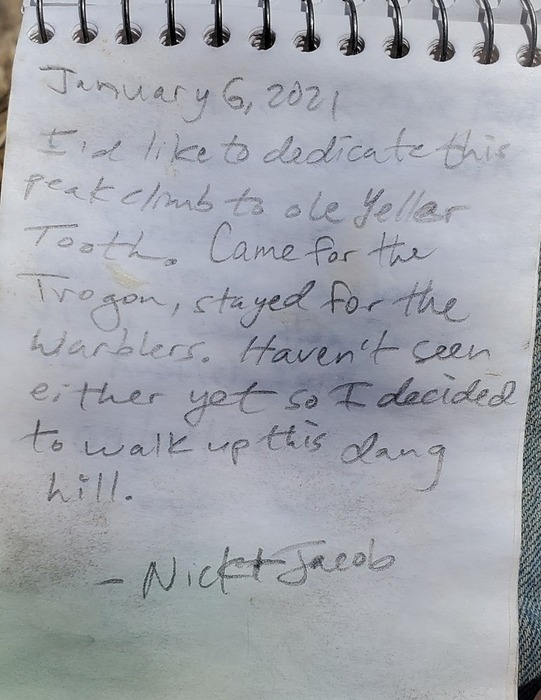 January 6, 2021
I'd like to dedicate this
peak climb to ole Yeller
Tooth. Came for the
Trogon, stayed for the
Warblers. Haven't seen
either yet so I decided
to walk up this dang
hill.
- Nick + Jacob